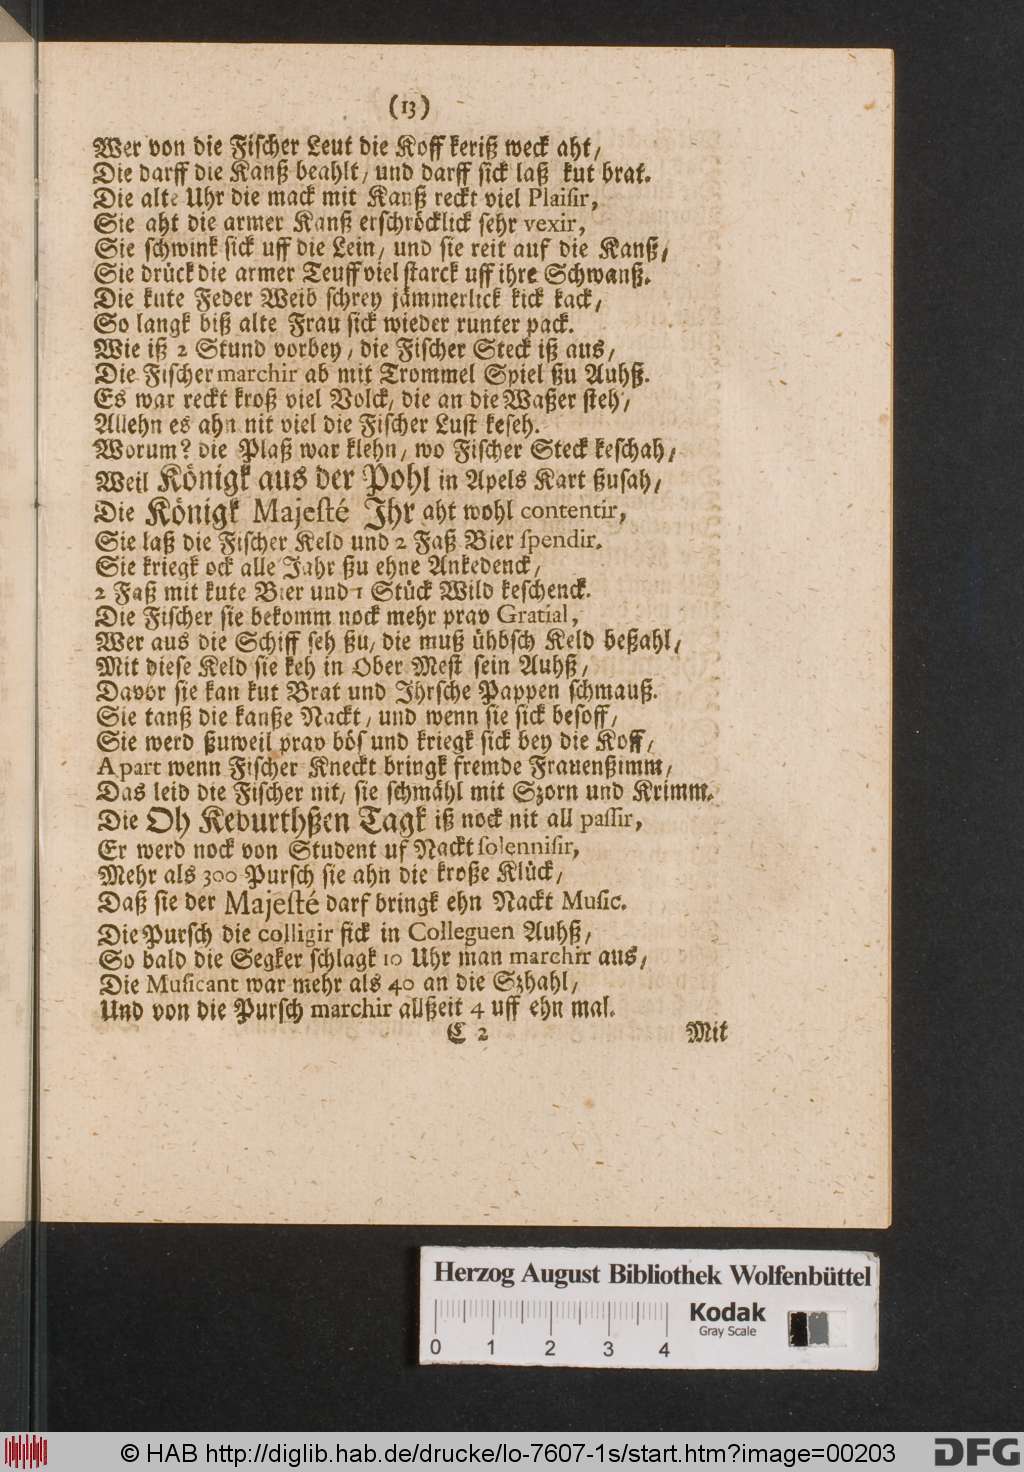 (13)
Wer von die Fischer Leut die Koff keriß weck aht/
Die darff die Kanß beahlt/ und darff sick laß kut brat.
Die alte Uhr die mack mit Kanß reckt viel Plaisir,
Sie aht die armer Kanß erschröcklick sehr vexir,
Sie schwink sick uff die Lein/ und sie reit auf die Kanß/
Sie drück die armer Teuff viel starck uff ihre Schwanß.
Die kute Feder Weib schrey jämmerlick kick kack/
So langk biß alte Frau sick wieder runter pack.
Wie iß 2 Stund vorbey/ die Fischer Steck iß aus/
Die Fischer marchir ab mit Trommel Spiel ßu Auhß.
Es war reckt kroß viel Volck, die an die Waßer steh/
Allehn es ahn nit viel die Fischer Lust keseh.
Worum? die Plaß war klehn/ wo Fischer Steck keschah/
Weil Königk aus der Pohl in Apels Kart ßusah/
Die Königk Majesté Ihr aht wohl contentir,
Sie laß die Fischer Keld und 2 Faß Bier spendir.
Sie kriegk ock alle Jahr ßu ehne Ankedenck/
2 Faß mit kute Bier und 1 Stück Wild keschenck.
Die Fischer sie bekomm nock mehr prav Gratial,
Wer aus die Schiff seh ßu/ die muß ühbsch Keld beßahl/
Mit diese Keld sie keh in Ober Mest sein Auhß/
Davor sie kan kut Brat und Ihrsche Pappen schmauß.
Sie tanß die kanße Nackt/ und wenn sie sick besoff/
Sie werd ßuweil prav bös und kriegk sick bey die Koff/
Apart wenn Fischer Kneckt bringk fremde Frauenßimm/
Das leid die Fischer nit/ sie schmähl mit Szorn und Krimm.
Die Oh Keburthßen Tagk iß nock nit all passir,
Er werd nock von Student uf Nackt solennisir,
Mehr als 300 Pursch sie ahn die kroße Klück/
Daß sie der Majesté darf bringk ehn Nackt Music.
Die Pursch die colligir sick in Colleguen Auhß/
So bald die Segker schlagk 10 Uhr man marchir aus/
Die Musicant war mehr als 40 an die Szhahl/
Und von die Pursch marchir allßeit 4 uff ehn mal.
C 2 Mit
Herzog August Bibliothek Wolfenbüttel
Kodak
Gray Scale
0 1 2 3 4
© HAB http://diglib.hab.de/drucke/lo-7607-1s/start.htm?image=00203
DFG